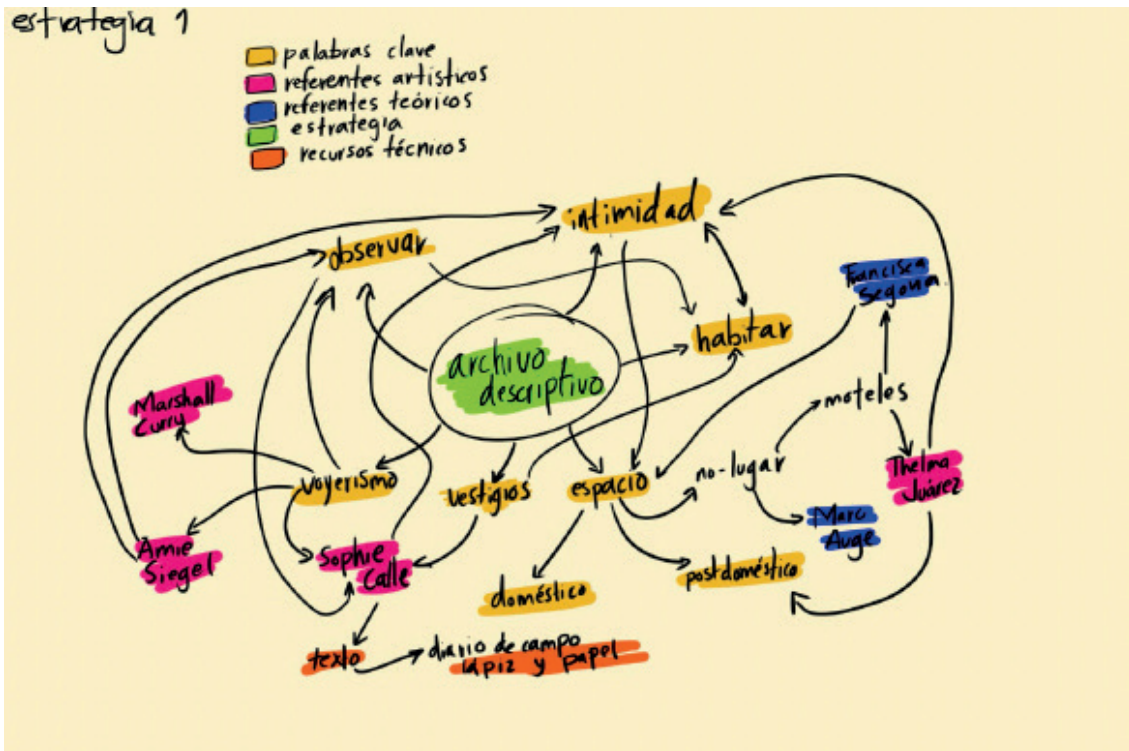 estrategia 1
palabras clave
referentes artísticos
referentes teóricos
estrategia
recursos técnicos
intimidad
observar
Francisca
Segovia
habitar
archivo
descriptivo
moteles
Marshall
Curry
no-lugar
Thelma
Juárez
voyerismo
vestigios
espacio
Marc
Auge
Amie
Siegel
Sophie
Calle
postdoméstico
doméstico
texto
diario de campo
lápiz y papel